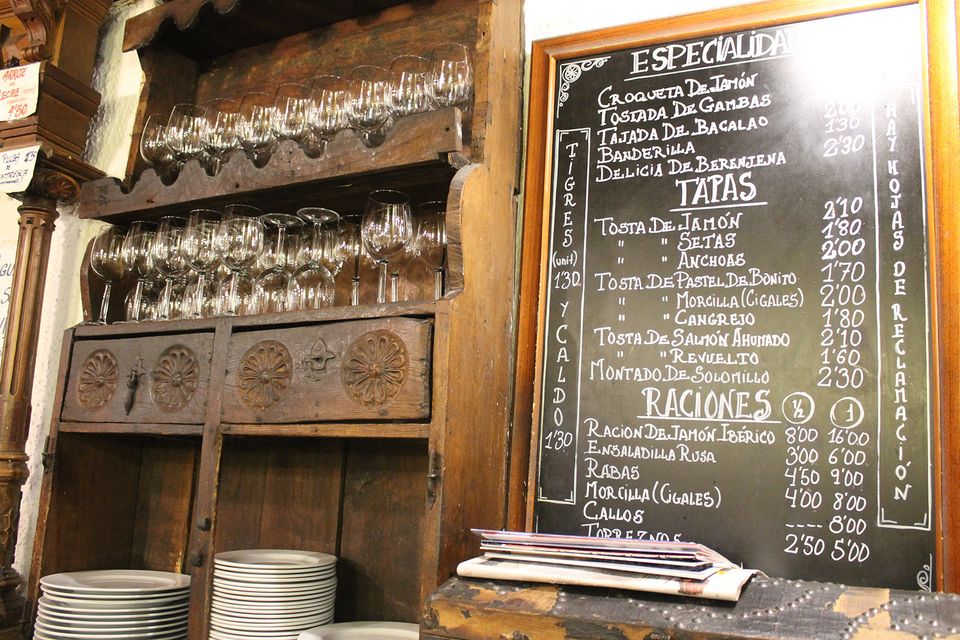 ARROZ
CON
1'50
ESPECIALIDAD
CROQUETA DE JAMÓN
TOSTADA DE GAMBAS
TAJADA DE BACALAO 2'00
BANDERILLA 1'30
DELICIA DE BERENJENA 2'30
TAPAS
TOSTA DE JAMÓN 2'10
" " SETAS 1'80
" " ANCHOAS 2'00
TOSTA DE PASTEL DE BONITO 1'70
" " MORCILLA (CIGALES) 2'00
" " CANGREJO 1'80
TOSTA DE SALMÓN AHUMADO 2'10
" " REVUELTO 1'60
MONTADO DE SOLOMILLO 2'30
RACIONES ½ 1
RACION DE JAMÓN IBÉRICO 8'00 16'00
ENSALADILLA RUSA 3'00 6'00
RABAS 4'50 9'00
MORCILLA (CIGALES) 4'00 8'00
CALLOS ---- 8'00
TORREZNOS 2'50 5'00
TIGRES (unit) 1'30 Y CALDO 1'30
HAY HOJAS DE RECLAMACIÓN